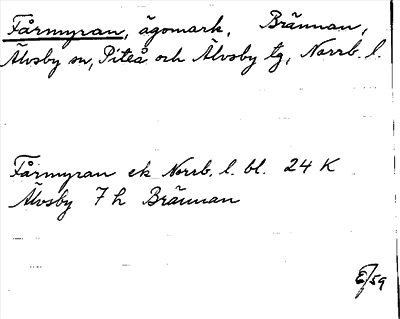 Fårmyran, ägomark, Brännan,
Älvsby sn, Piteå och Älvsby tg, Norrb. l.
Fårmyran ek Norrb. l. bl. 24 K
Älvsby 7 h Brännan
E/59